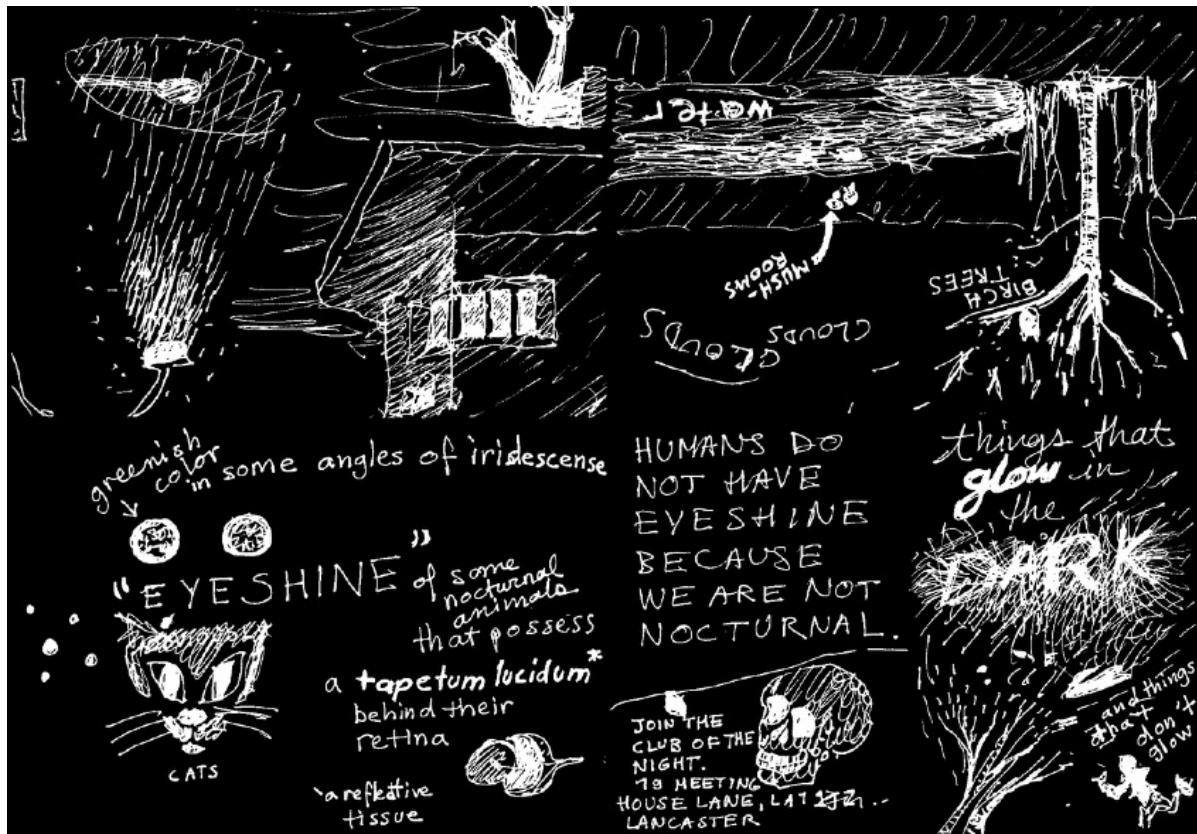 water
MUSH-
ROOMS
BIRCH
TREES
CLOUDS
CLOUDS
greenish
color
in some angles of iridescense
"EYESHINE"
of some
nocturnal
animals
that possess
a tapetum lucidum*
behind their
retina
CATS
*a reflective
tissue
HUMANS DO
NOT HAVE
EYESHINE
BECAUSE
WE ARE NOT
NOCTURNAL.
JOIN THE
CLUB OF THE
NIGHT.
79 MEETING
HOUSE LANE,
LANCASTER
things that
glow in
the
DARK
and things
that
don't
glow